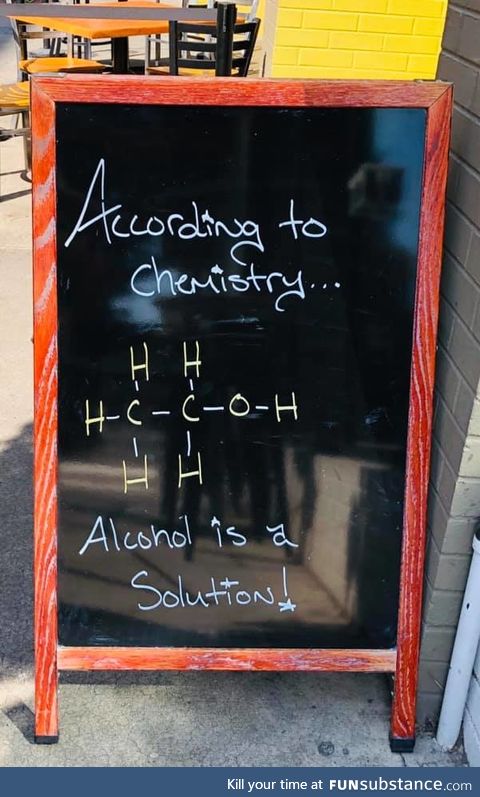 According to
Chemistry...
H H
H-C-C-O-H
H H
Alcohol is a
Solution!
Kill your time at FUNsubstance.com